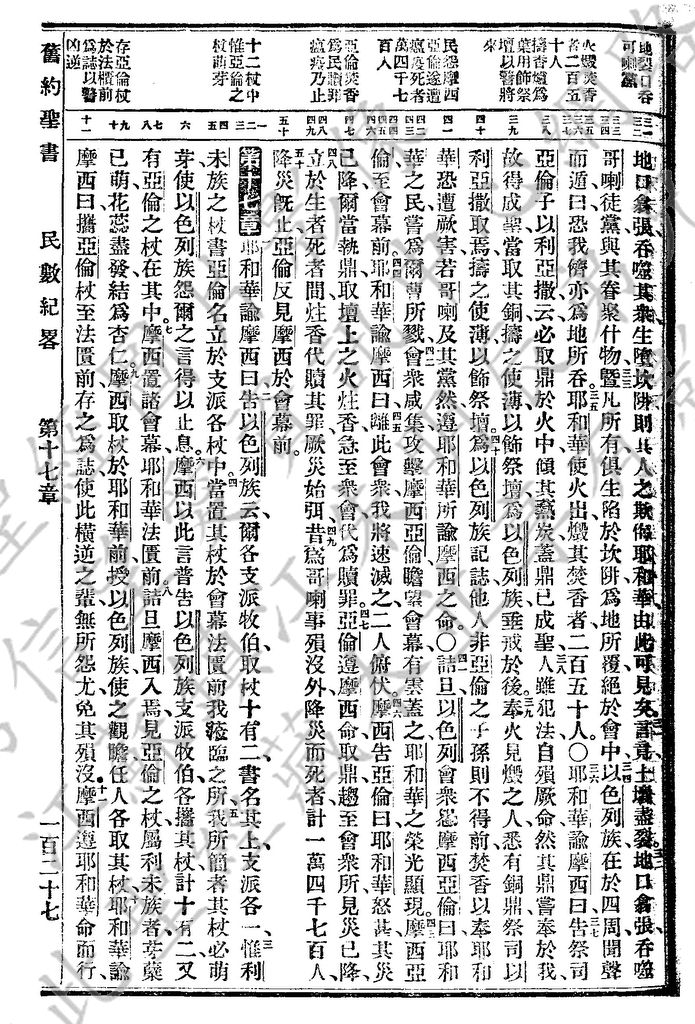 地裂口吞
可喇黨
火燬焚香
者二百五
十人
擣香爐爲
葉用飾祭
壇以警將
來
民怨摩西
亞倫遂遭
瘟疫死者
萬四千七
百人
亞倫焚香
爲民贖罪
瘟疫乃止
十二杖中
惟亞倫之
杖萌芽
存亞倫杖
於法匱前
爲誌以警
凶逆
地口翕張吞噬其衆生墮坎阱則其人之欺侮耶和華由此可見矣言竟土壤盡裂地口翕張吞噬
哥喇徒黨與其眷聚什物曁凡所有俱生陷於坎阱爲地所覆絕於會中以色列族在於四周聞聲
而遁曰恐我儕亦爲地所吞耶和華使火出燬其焚香者二百五十人〇耶和華諭摩西曰告祭司
亞倫子以利亞撒云必取鼎於火中傾其爇炭蓋鼎已成聖人雖犯法自殞厥命然其鼎嘗奉於我
故得成聖當取其銅擣之使薄以飾祭壇爲以色列族垂戒於後奉火見燬之人悉有銅鼎祭司以
利亞撒取焉擣之使薄以飾祭壇爲以色列族記誌他人非亞倫之子孫則不得前焚香以奉耶和
華恐遭厥害若哥喇及其黨然遵耶和華所諭摩西之命〇詰旦以色列會衆怨摩西亞倫曰耶和
華之民嘗爲爾曹所戮會衆咸集攻擊摩西亞倫瞻望會幕有雲蓋之耶和華之榮光顯現摩西亞
倫至會幕前耶和華諭摩西曰離此會衆我將速滅之二人俯伏摩西告亞倫曰耶和華怒甚其災
已降爾當執鼎取壇上之火炷香急至衆會代爲贖罪亞倫遵摩西命取鼎趨至會衆所見災已降
立於生者死者間炷香代贖其罪厥災始弭昔爲哥喇事殞沒外降災而死者計一萬四千七百人
降災旣止亞倫反見摩西於會幕前
第十七章 耶和華諭摩西曰告以色列族云爾各支派牧伯取杖十有二書名其上支派各一惟利
未族之杖書亞倫名立於支派各杖中當置其杖於會幕法匱前我涖臨之所我所簡者其杖必萌
芽使以色列族怨爾之言得以止息摩西以此言普告以色列族支派牧伯各攜其杖計十有二又
有亞倫之杖在其中摩西置諸會幕耶和華法匱前詰旦摩西入焉見亞倫之杖屬利未族者芽蘗
已萌花蕊盡發結爲杏仁摩西取杖於耶和華前授以色列族使之觀瞻任人各取其杖耶和華諭
摩西曰攜亞倫杖至法匱前存之爲誌使此橫逆之輩無所怨尤免其殞沒摩西遵耶和華命而行
舊約聖書 民數紀畧 第十七章 一百二十七